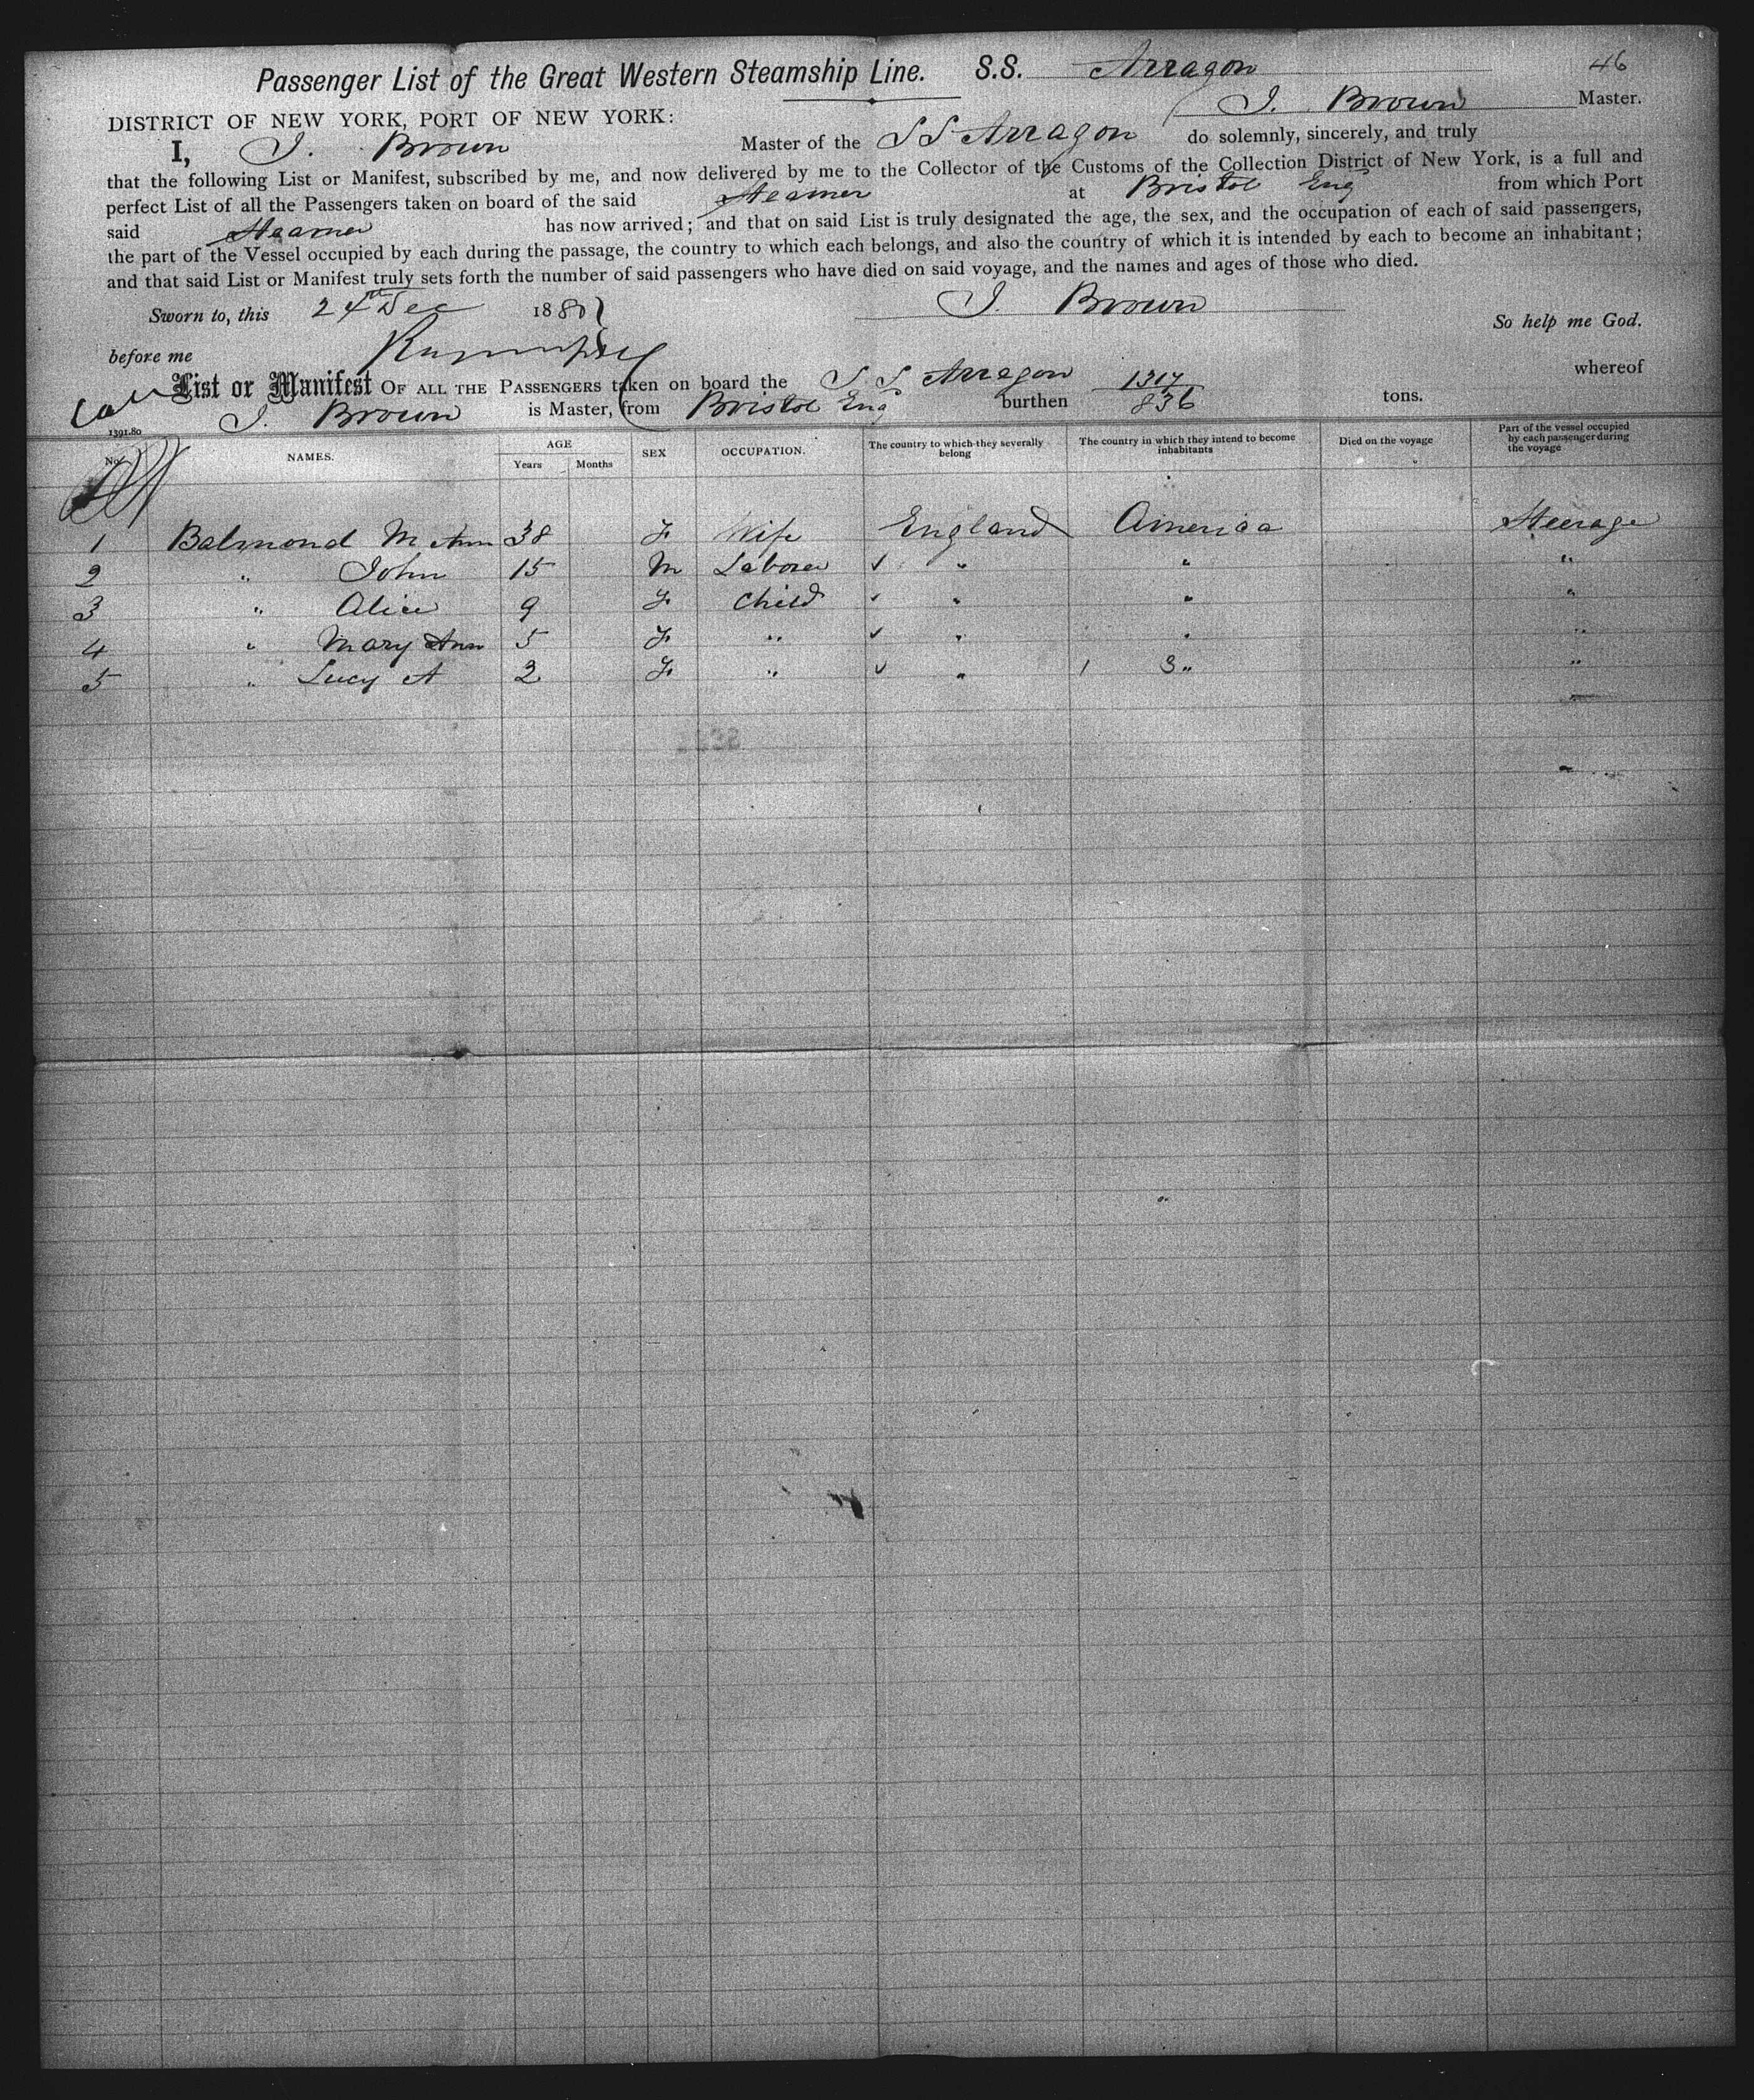 Passenger List of the Great Western Steamship Line. S.S. Arragon 46
J. Brown Master.
DISTRICT OF NEW YORK, PORT OF NEW YORK:
I, J. Brown Master of the SS Arragon do solemnly, sincerely, and truly
that the following List or Manifest, subscribed by me, and now delivered by me to the Collector of the Customs of the Collection District of New York, is a full and
perfect List of all the Passengers taken on board of the said Steamer at Bristol Eng from which Port
said Steamer has now arrived; and that on said List is truly designated the age, the sex, and the occupation of each of said passengers,
the part of the Vessel occupied by each during the passage, the country to which each belongs, and also the country of which it is intended by each to become an inhabitant;
and that said List or Manifest truly sets forth the number of said passengers who have died on said voyage, and the names and ages of those who died.
Sworn to, this 24th Dec 188 J. Brown
So help me God.
before me
List or Manifest OF ALL THE PASSENGERS taken on board the S.S Arragon whereof
J. Brown is Master, from Bristol Eng burthen 1317 836 tons.
1391.80
No. NAMES. AGE Years Months SEX OCCUPATION. The country to which they severally belong The country in which they intend to become inhabitants Died on the voyage Part of the vessel occupied by each passenger during the voyage
1 Balmond M Ann 38 F Wife England America Steerage
2 " John 15 M Laborer ✓ " " "
3 " Alice 9 F Child ✓ " " "
4 " Mary Ann 5 F " ✓ " " "
5 " Lucy A 2 F " ✓ " 1 3 " "